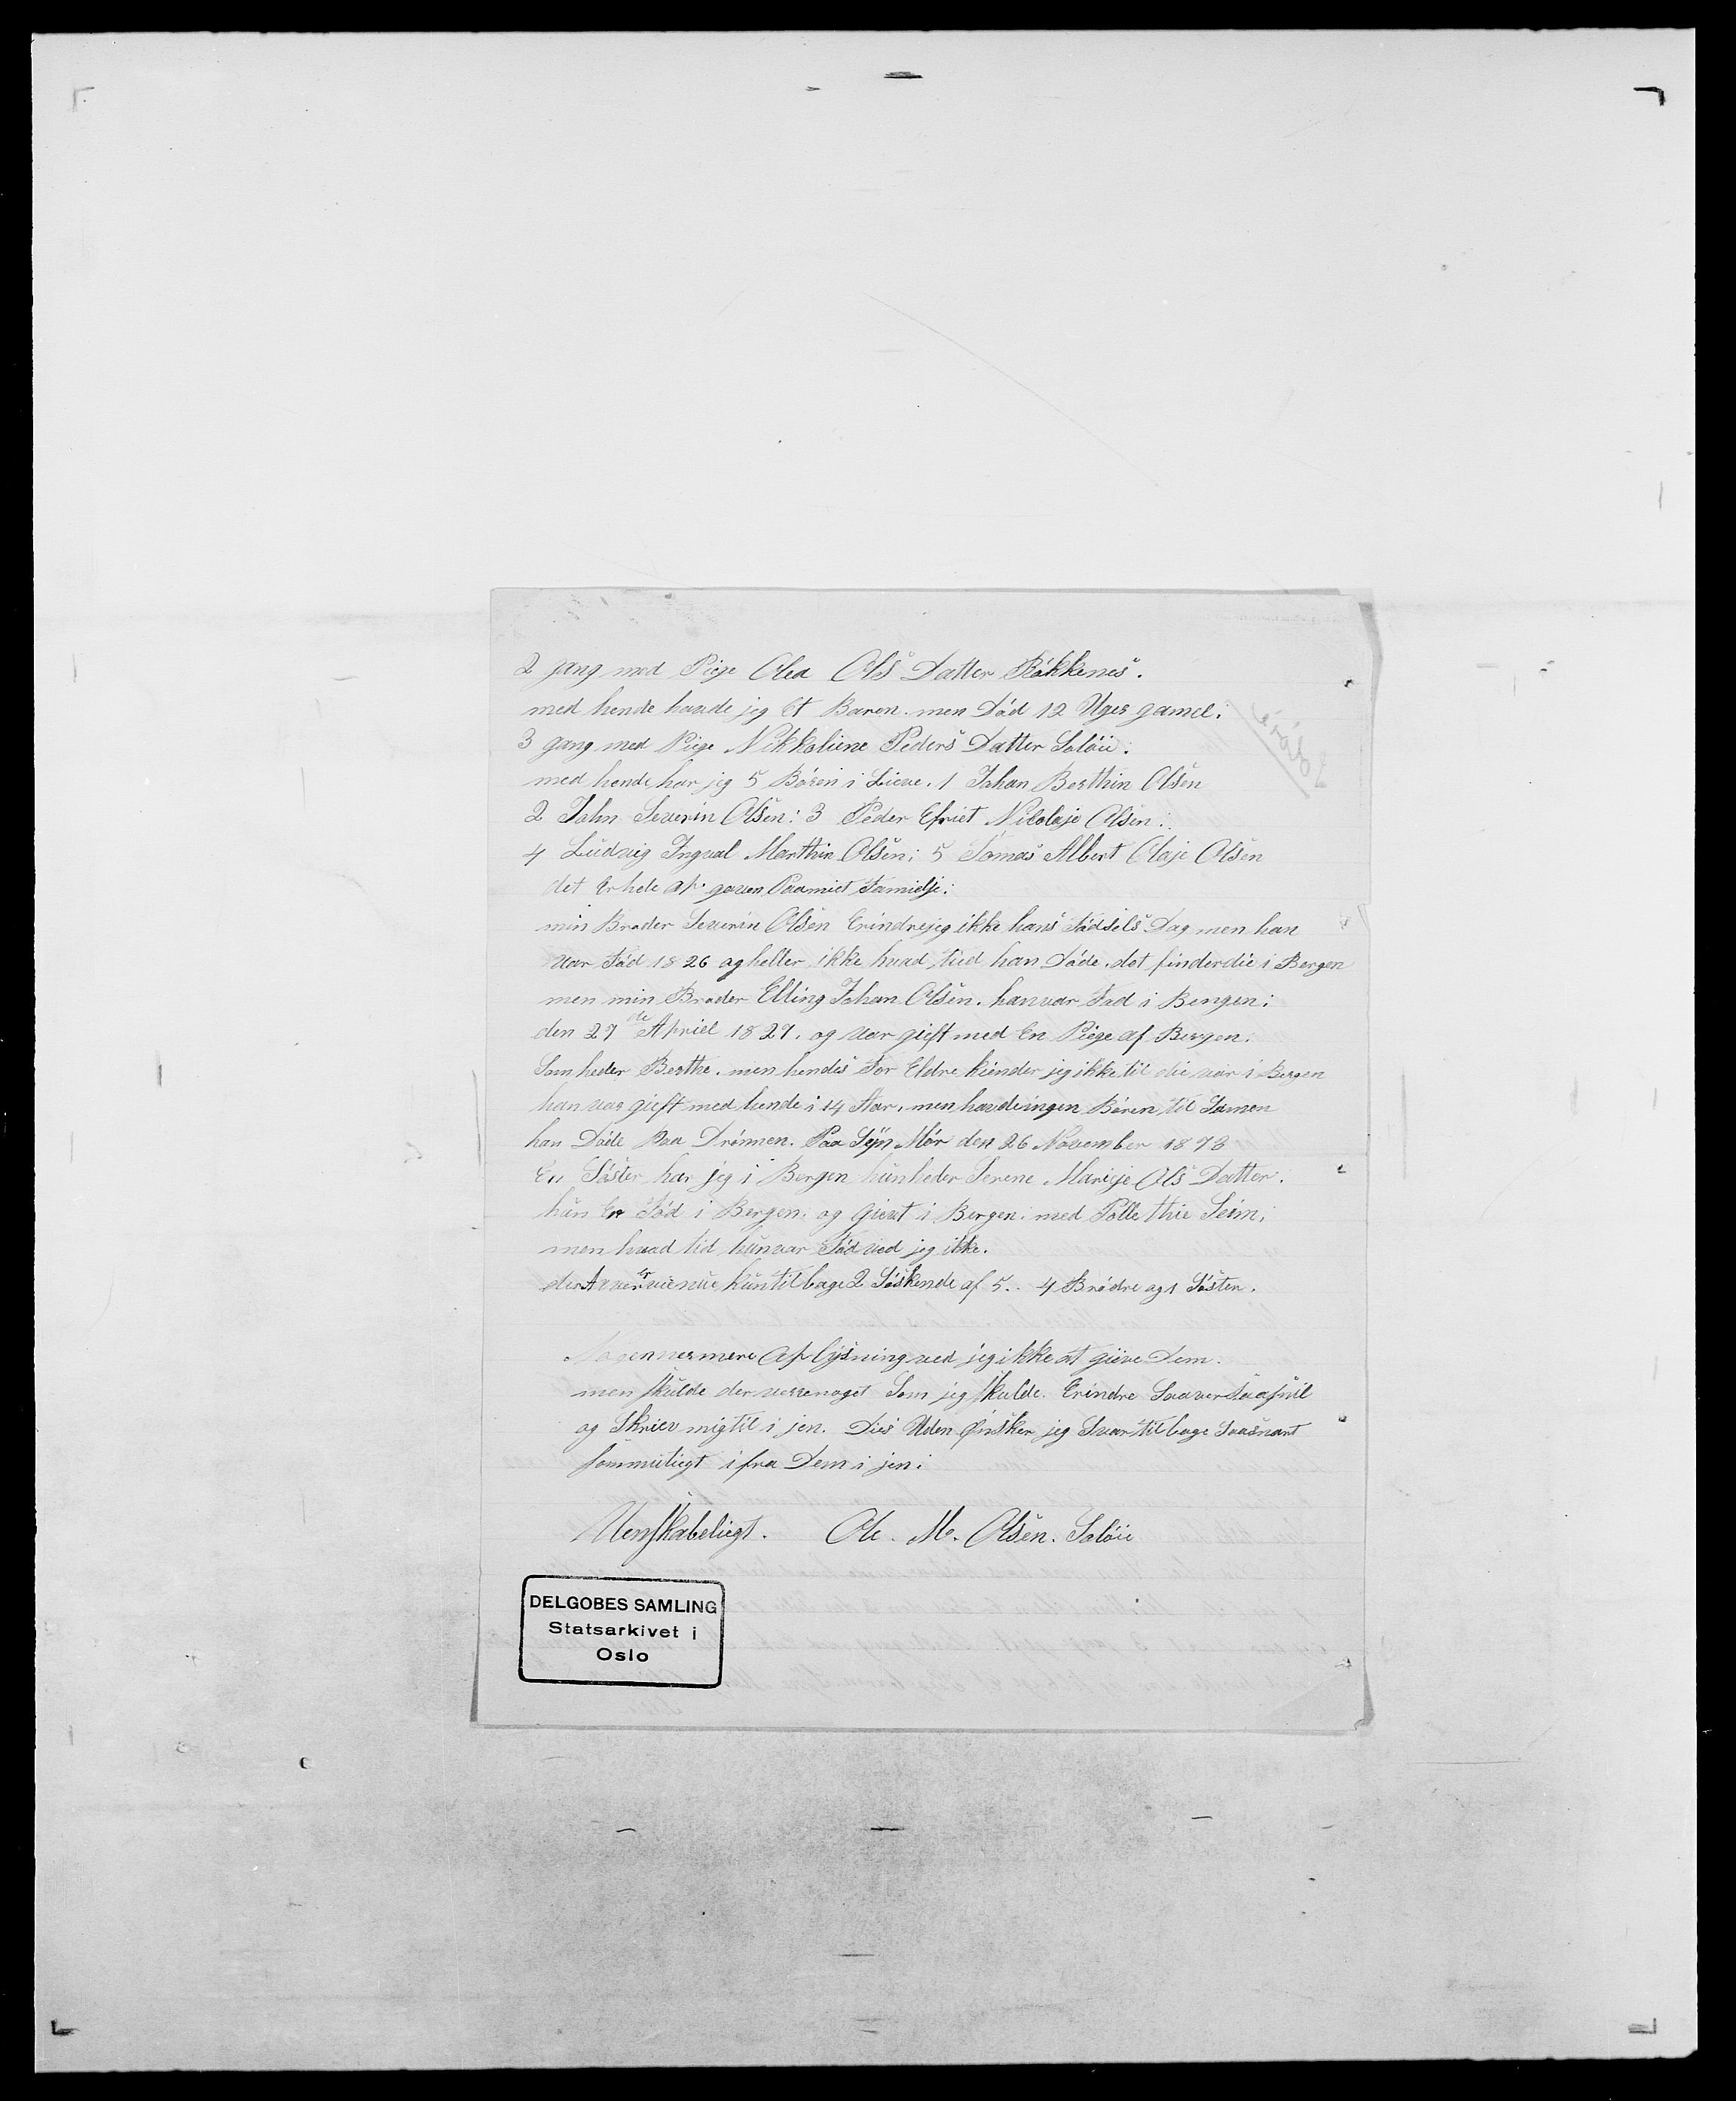 2 gang med Piege Olea Ols Datter Røkkenes.
med hende havde jeg Et Baren. men Død 12 Uger gamel:
3 gang med Piege Nikkoliene Peders Datter Soløii:
med hende har jeg 5 Børen i Lieve. 1 Johan Berthin Olsen
2 John Severin Olsen: 3 Peder Efriet Nikolaje Olsen:
4 Ludvig Ingval Marthin Olsen: 5 Tomas Albert Olaje Olsen
det Er hele af gaven Paa miet Famielje:
min Broder Severin Olsen Erindre jeg ikke hans Fødsels Dag men han
var Fød 1826 og heller ikke hvad tied han Døde. det finder die i Bergen
men min Broder Elling Johan Olsen. han var Fød i Bergen:
den 27de Apriel 1829. og var gieft med En Piege af Bergen:
Som heder Berthe. men hendes For Eldre kiender jeg ikke til die var i Bergen
han var gieft med hende i 14 Aar. men havde ingen Børen til Samen
han Døde Paa Drømen. Paa Syn Mør den 26 November 1873
En Søster har jeg i Bergen hun heder Serene Marije Ols Datter.
hun Er Fød i Bergen. og gievt i Bergen. med Polle thie Seim:
men hvad tid hun var Fød ved jeg ikke.
der Aver vie nu kun tilbage 2 Søskende af 5. 4 Brødre og 1 Søster.
Nogen nermere Oplysning ved jeg ikke at gieve Dem.
men skulde der verre noget Som jeg skulde Erindre Saa ver Saa snil
og Skriev mig til i jen. Dies Uden Ønsker jeg Svar tilbage Saa snart
som muliegt ifra Dem i jen:
Venskabeliegt. Ole. M. Olsen. Soløii
Soløie
DELGOBES SAMLING
Statsarkivet i
Oslo